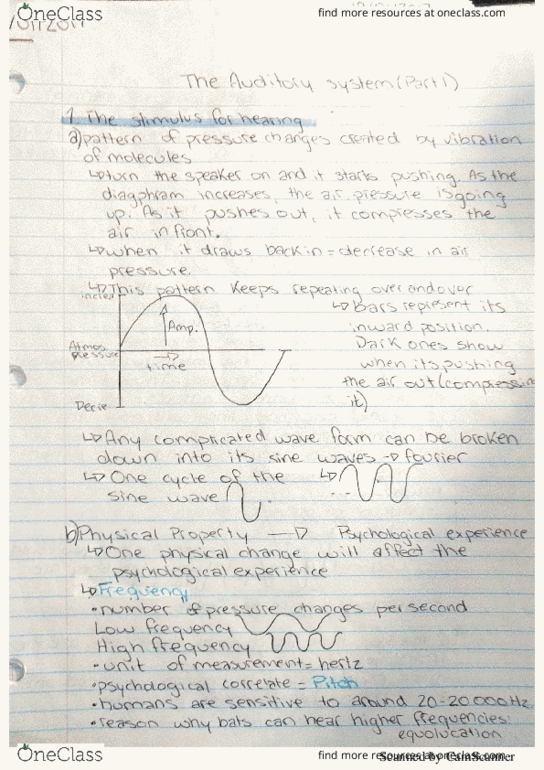 OneClass
find more resources at oneclass.com
The Auditory system (Part 1)
1. The stimulus for hearing
a) pattern of pressure changes created by vibration
of molecules
↳ turn the speaker on and it starts pushing. As the
diagphram increases, the air pressure is going
up. As it pushes out, it compresses the
air in front.
↳ when it draws back in = decrease in air
pressure.
↳ This pattern keeps repeating over and over
increa
Amp.
Atmos
pressure
time
Decre
↳ Bars represent its
inward position.
Dark ones show
when its pushing
the air out (compressin
it)
↳ Any complicated wave form can be broken
down into its sine waves → fourier
↳ One cycle of the
sine wave
↳
b) Physical Property → Psychological experience
↳ One physical change will affect the
psychological experience
↳ Frequency
• number of pressure changes per second
Low frequency
High frequency
• unit of measurement = hertz
• psychological correlate = Pitch
• humans are sensitive to around 20-20 000 Hz
• reason why bats can hear higher frequencies:
equolucation
OneClass
find more resources at oneclass.com
Scanned by CamScanner